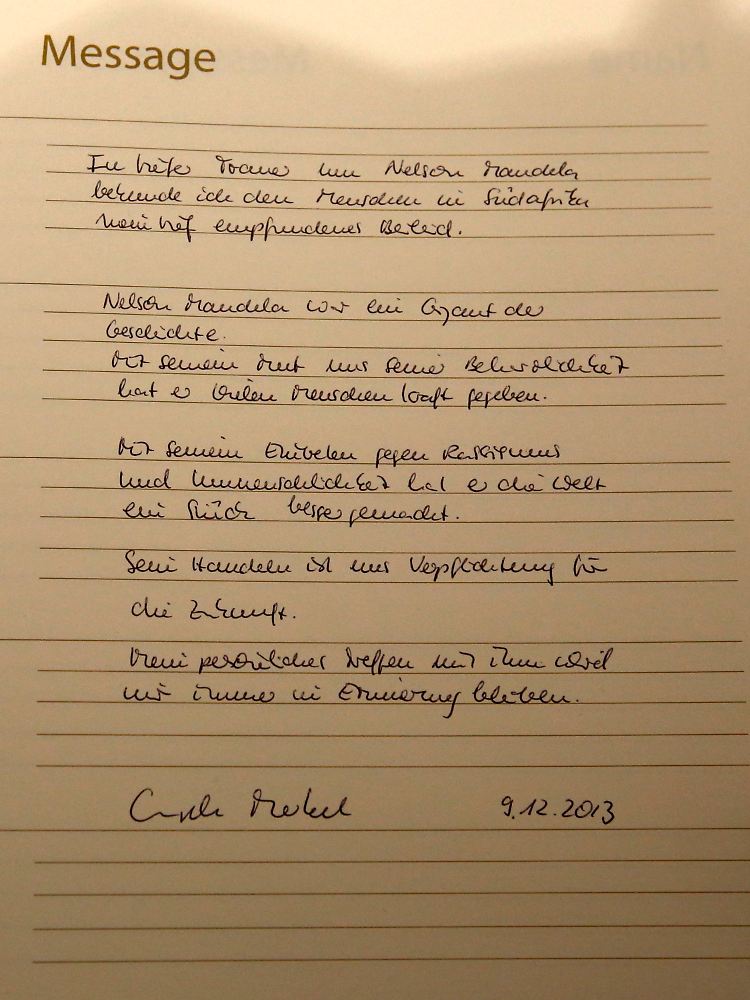 Message
In tiefer Trauer um Nelson Mandela
bekunde ich den Menschen in Südafrika
mein tief empfundenes Beileid.
Nelson Mandela war ein Gigant der
Geschichte.
Mit seinem Mut und seiner Beharrlichkeit
hat er vielen Menschen Kraft gegeben.
Mit seinem Eintreten gegen Rassismus
und Unmenschlichkeit hat er die Welt
ein Stück besser gemacht.
Sein Handeln ist uns Verpflichtung für
die Zukunft.
Mein persönliches Treffen mit ihm wird
mir immer in Erinnerung bleiben.
Angela Merkel 9.12.2013